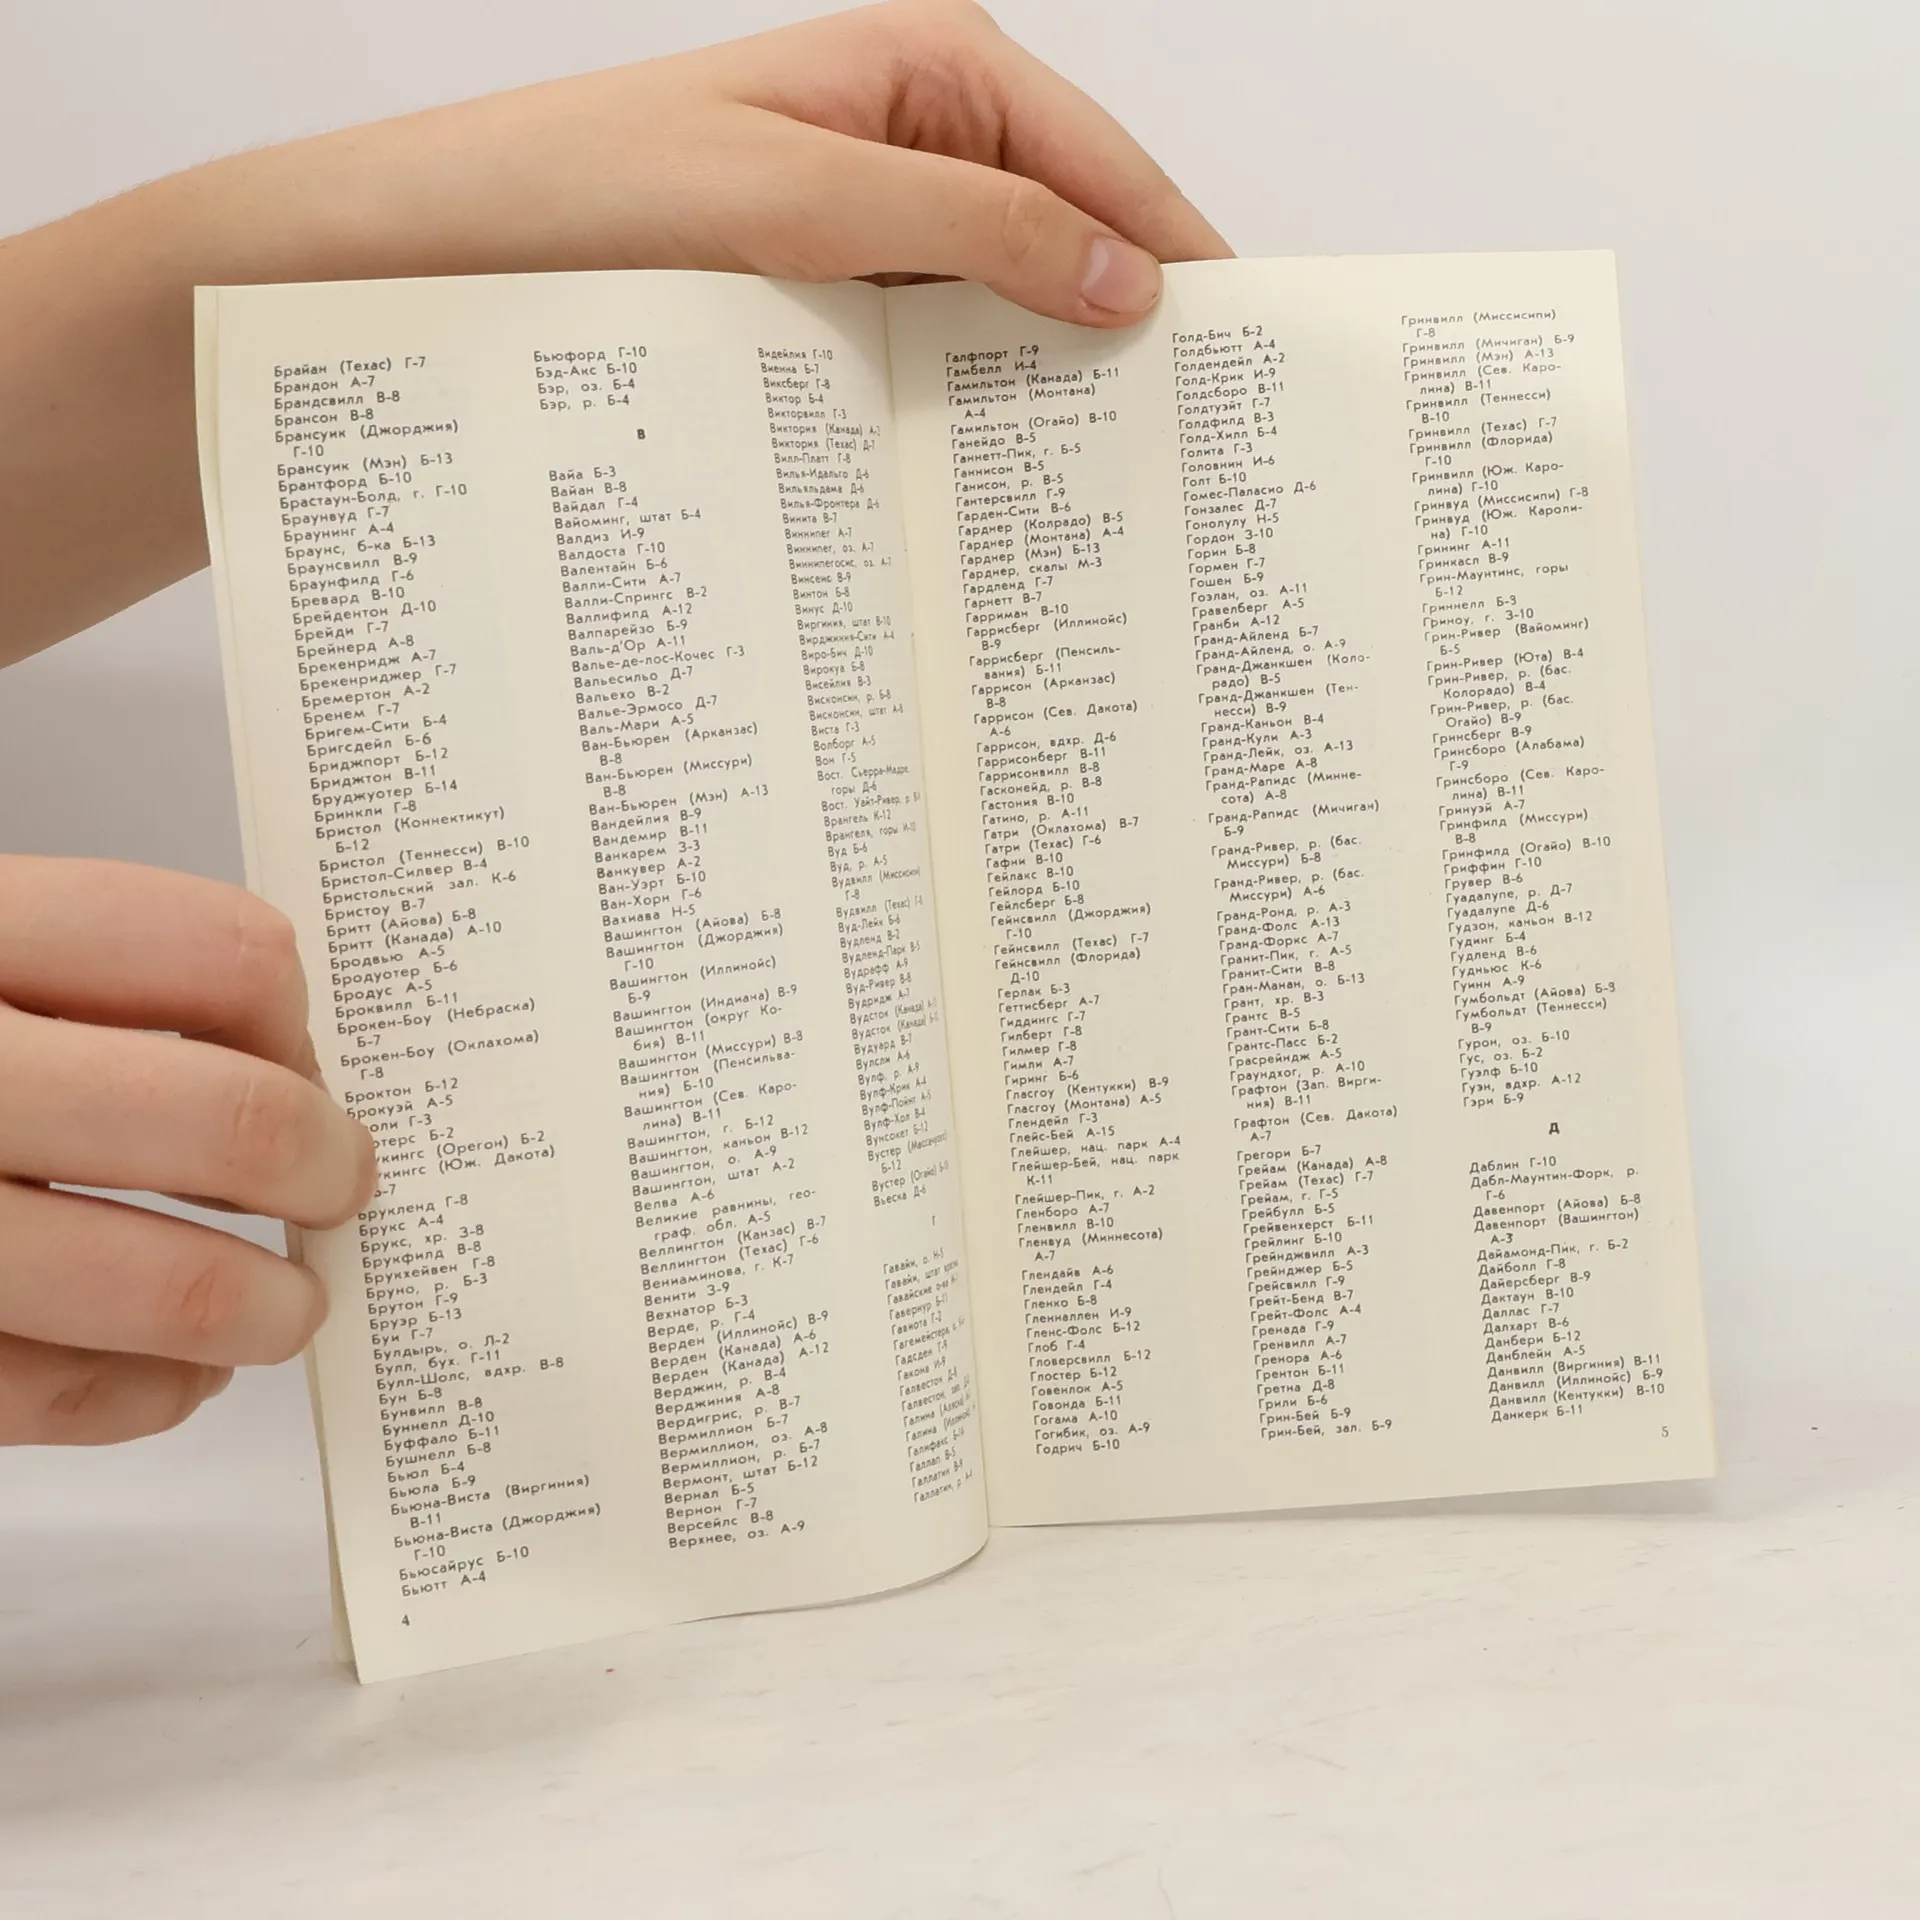 Брайан (Техас) Г-7
Брандон А-7
Брандсвилл В-8
Брансон В-8
Брансуик (Джорджия)
Г-10
Брансуик (Мэн) Б-13
Брантфорд Б-10
Брастаун-Болд, г. Г-10
Браунвуд Г-7
Браунинг А-4
Браунс, б-ка Б-13
Браунсвилл В-9
Браунфилд Г-6
Бревард В-10
Брейдентон Д-10
Брейди Г-7
Брейнерд А-8
Брекенридж А-7
Брекенриджер Г-7
Бремертон А-2
Бренем Г-7
Бригем-Сити Б-4
Бригсдейл Б-6
Бриджпорт Б-12
Бриджтон В-11
Бруджуотер Б-14
Бринкли Г-8
Бристол (Коннектикут)
Б-12
Бристол (Теннесси) В-10
Бристол-Силвер В-4
Бристольский зал. К-6
Бристоу В-7
Бритт (Айова) Б-8
Бритт (Канада) А-10
Бродвью А-5
Бродуотер Б-6
Бродус А-5
Броквилл Б-11
Брокен-Боу (Небраска)
Б-7
Брокен-Боу (Оклахома)
Г-8
Броктон Б-12
Брокуэй А-5
Г-3
Б-2
(Орегон) Б-2
(Юж. Дакота)
Б-7
Брукленд Г-8
Брукс А-4
Брукс, хр. З-8
Брукфилд В-8
Брукхейвен Г-8
Бруно, р. Б-3
Брутон Г-9
Бруэр Б-13
Буи Г-7
Булдырь, о. Л-2
Булл, бух. Г-11
Булл-Шолс, вдхр. В-8
Бун Б-8
Бунвилл В-8
Буннелл Д-10
Буффало Б-11
Бушнелл Б-8
Бьюл Б-4
Бьюла Б-9
Бьюна-Виста (Виргиния)
В-11
Бьюна-Виста (Джорджия)
Г-10
Бьюсайрус Б-10
Бьютт А-4
4
Бьюфорд Г-10
Бэд-Акс Б-10
Бэр, оз. Б-4
Бэр, р. Б-4
В
Вайа Б-3
Вайан В-8
Вайдал Г-4
Вайоминг, штат Б-4
Валдиз И-9
Валдоста Г-10
Валентайн Б-6
Валли-Сити А-7
Валли-Спрингс В-2
Валлифилд А-12
Валпарейзо Б-9
Валь-д'Ор А-11
Валье-де-лос-Кочес Г-3
Вальесильо Д-7
Вальехо В-2
Валье-Эрмосо Д-7
Валь-Мари А-5
Ван-Бьюрен (Арканзас)
В-8
Ван-Бьюрен (Миссури)
В-8
Ван-Бьюрен (Мэн) А-13
Вандейлия В-9
Вандемир В-11
Ванкарем З-3
Ванкувер А-2
Ван-Уэрт Б-10
Ван-Хорн Г-6
Вахиава Н-5
Вашингтон (Айова) Б-8
Вашингтон (Джорджия)
Г-10
Вашингтон (Иллинойс)
Б-9
Вашингтон (Индиана) В-9
Вашингтон (округ Ко-
бия) В-11
Вашингтон (Миссури) В-8
Вашингтон (Пенсильва-
ния) Б-10
Вашингтон (Сев. Каро-
лина) В-11
Вашингтон, г. Б-12
Вашингтон, каньон В-12
Вашингтон, о. А-9
Вашингтон, штат А-2
Велва А-6
Великие равнины, гео-
граф. обл. А-5
Веллингтон (Канзас) В-7
Веллингтон (Техас) Г-6
Вениаминова, г. К-7
Венити З-9
Вехнатор Б-3
Верде, р. Г-4
Верден (Иллинойс) В-9
Верден (Канада) А-6
Верден (Канада) А-12
Верджин, р. В-4
Верджиния А-8
Вердигрис, р. В-7
Вермиллион Б-7
Вермиллион, оз. А-8
Вермиллион, р. Б-7
Вермонт, штат Б-12
Вернал Б-5
Вернон Г-7
Версейлс В-8
Верхнее, оз. А-9
Видейлия Г-10
Виенна Б-7
Виксберг Г-8
Виктор Б-4
Викторвилл Г-3
Виктория (Канада) А-2
Виктория (Техас) Д-7
Вилл-Платт Г-8
Вилья-Идальго Д-6
Вильяльдама Д-6
Вилья-Фронтера Д-6
Винита В-7
Виннипег А-7
Виннипег, оз. А-7
Виннипегосис, оз. А-7
Винсенс В-9
Винтон Б-8
Винус Д-10
Виргиния, штат В-10
Вирджиния-Сити А-4
Виро-Бич Д-10
Вирокуа Б-8
Висейлия В-3
Висконсин, р. Б-8
Висконсин, штат А-8
Виста Г-3
Волборг А-5
Вон Г-5
Вост. Сьерра-Мадре,
горы Д-6
Вост. Уайт-Ривер, р.
Врангель К-12
Врангеля, горы И-10
Вуд Б-6
Вуд, р. А-5
Вудвилл (Миссисипи)
Г-8
Вудвилл (Техас) Г-8
Вуд-Лейк Б-6
Вудленд В-2
Вудленд-Парк В-5
Вудрафф А-9
Вуд-Ривер В-8
Вудридж А-7
Вудсток (Канада)
Вудсток (Канада)
Вудуард В-7
Вулсли А-6
Вулф, р. А-9
Вулф-Крик А-4
Вулф-Пойнт А-5
Вулф-Хол В-4
Вунсокет Б-12
Вустер (Массачусетс)
Б-12
Вустер (Огайо)
Вьеска Д-6
Г
Гавайи, о. Н-5
Гавайи, штат
Гавайские о-ва
Гавернур Б-11
Гавиота Г-2
Гагемейстера, о.
Гадсден Г-9
Гакона И-9
Галвестон Д-8
Галвестон, зал.
Галина
Галина
Галифакс
Галлап В-5
Галлатин В-9
Галлатин, р. А-4
Галфпорт Г-9
Гамбелл И-4
Гамильтон (Канада) Б-11
Гамильтон (Монтана)
А-4
Гамильтон (Огайо) В-10
Ганейдо В-5
Ганнетт-Пик, г. Б-5
Ганнисон В-5
Ганисон, р. В-5
Гантерсвилл Г-9
Гарден-Сити В-6
Гарднер (Колрадо) В-5
Гарднер (Монтана) А-4
Гарднер (Мэн) Б-13
Гарднер, скалы М-3
Гардленд Г-7
Гарнетт В-7
Гарриман В-10
Гаррисберг (Иллинойс)
В-9
Гаррисберг (Пенсиль-
вания) Б-11
Гаррисон (Арканзас)
В-8
Гаррисон (Сев. Дакота)
А-6
Гаррисон, вдхр. Д-6
Гаррисонберг В-11
Гаррисонвилл В-8
Гасконейд, р. В-8
Гастония В-10
Гатино, р. А-11
Гатри (Оклахома) В-7
Гатри (Техас) Г-6
Гафни В-10
Гейлакс В-10
Гейлорд Б-10
Гейлсберг Б-8
Гейнсвилл (Джорджия)
Г-10
Гейнсвилл (Техас) Г-7
Гейнсвилл (Флорида)
Д-10
Герлак Б-3
Геттисберг А-7
Гиддингс Г-7
Гилберт Г-8
Гилмер Г-8
Гимли А-7
Гиринг Б-6
Гласгоу (Кентукки) В-9
Гласгоу (Монтана) А-5
Глендейл Г-3
Глейс-Бей А-15
Глейшер, нац. парк А-4
Глейшер-Бей, нац. парк
К-11
Глейшер-Пик, г. А-2
Гленборо А-7
Гленвилл В-10
Гленвуд (Миннесота)
А-7
Глендайв А-6
Глендейл Г-4
Гленко Б-8
Гленналлен И-9
Гленс-Фолс Б-12
Глоб Г-4
Гловерсвилл Б-12
Глостер Б-12
Говенлок А-5
Говонда Б-11
Гогама А-10
Гогибик, оз. А-9
Годрич Б-10
Голд-Бич Б-2
Голдбьютт А-4
Голдендейл А-2
Голд-Крик И-9
Голдсборо В-11
Голдтуэйт Г-7
Голдфилд В-3
Голд-Хилл Б-4
Голита Г-3
Головнин И-6
Голт Б-10
Гомес-Паласио Д-6
Гонзалес Д-7
Гонолулу Н-5
Гордон З-10
Горин Б-8
Гормен Г-7
Гошен Б-9
Гоэлан, оз. А-11
Гравелберг А-5
Гранби А-12
Гранд-Айленд Б-7
Гранд-Айленд, о. А-9
Гранд-Джанкшен (Коло-
радо) В-5
Гранд-Джанкшен (Тен-
несси) В-9
Гранд-Каньон В-4
Гранд-Кули А-3
Гранд-Лейк, оз. А-13
Гранд-Маре А-8
Гранд-Рапидс (Минне-
сота) А-8
Гранд-Рапидс (Мичиган)
Б-9
Гранд-Ривер, р. (бас.
Миссури) Б-8
Гранд-Ривер, р. (бас.
Миссури) А-6
Гранд-Ронд, р. А-3
Гранд-Фолс А-13
Гранд-Форкс А-7
Гранит-Пик, г. А-5
Гранит-Сити В-8
Гран-Манан, о. Б-13
Грант, хр. В-3
Грантс В-5
Грант-Сити Б-8
Грантс-Пасс Б-2
Грасрейндж А-5
Граундхог, р. А-10
Графтон (Зап. Вирги-
ния) В-11
Графтон (Сев. Дакота)
А-7
Грегори Б-7
Грейам (Канада) А-8
Грейам (Техас) Г-7
Грейам, г. Г-5
Грейбулл Б-5
Грейвенхерст Б-11
Грейлинг Б-10
Грейнджвилл А-3
Грейнджер Б-5
Грейсвилл Г-9
Грейт-Бенд В-7
Грейт-Фолс А-4
Гренада Г-9
Гренвилл А-7
Гренора А-6
Грентон Б-11
Гретна Д-8
Грили Б-6
Грин-Бей Б-9
Грин-Бей, зал. Б-9
Гринвилл (Миссисипи)
Г-8
Гринвилл (Мичиган) Б-9
Гринвилл (Мэн) А-13
Гринвилл (Сев. Каро-
лина) В-11
Гринвилл (Теннесси)
В-10
Гринвилл (Техас) Г-7
Гринвилл (Флорида)
Г-10
Гринвилл (Юж. Каро-
лина) Г-10
Гринвуд (Миссисипи) Г-8
Гринвуд (Юж. Кароли-
на) Г-10
Грининг А-11
Гринкасл В-9
Грин-Маунтинс, горы
Б-12
Гриннелл Б-3
Гриноу, г. З-10
Грин-Ривер (Вайоминг)
Б-5
Грин-Ривер (Юта) В-4
Грин-Ривер, р. (бас.
Колорадо) В-4
Грин-Ривер, р. (бас.
Огайо) В-9
Гринсберг В-9
Гринсборо (Алабама)
Г-9
Гринсборо (Сев. Каро-
лина) В-11
Гринуэй А-7
Гринфилд (Миссури)
В-8
Гринфилд (Огайо) В-10
Гриффин Г-10
Грувер В-6
Гуадалупе, р. Д-7
Гуадалупе Д-6
Гудзон, каньон В-12
Гудинг Б-4
Гудленд В-6
Гудньюс К-6
Гуинн А-9
Гумбольдт (Айова) Б-8
Гумбольдт (Теннесси)
В-9
Гурон, оз. Б-10
Гус, оз. Б-2
Гуэлф Б-10
Гуэн, вдхр. А-12
Гэри Б-9
Д
Даблин Г-10
Дабл-Маунтин-Форк, р.
Г-6
Давенпорт (Айова) Б-8
Давенпорт (Вашингтон)
А-3
Дайамонд-Пик, г. Б-2
Дайболл Г-8
Дайерсберг В-9
Дактаун В-10
Даллас Г-7
Далхарт В-6
Данбери Б-12
Данблейн А-5
Данвилл (Виргиния) В-11
Данвилл (Иллинойс) Б-9
Данвилл (Кентукки) В-10
Данкерк Б-11
5